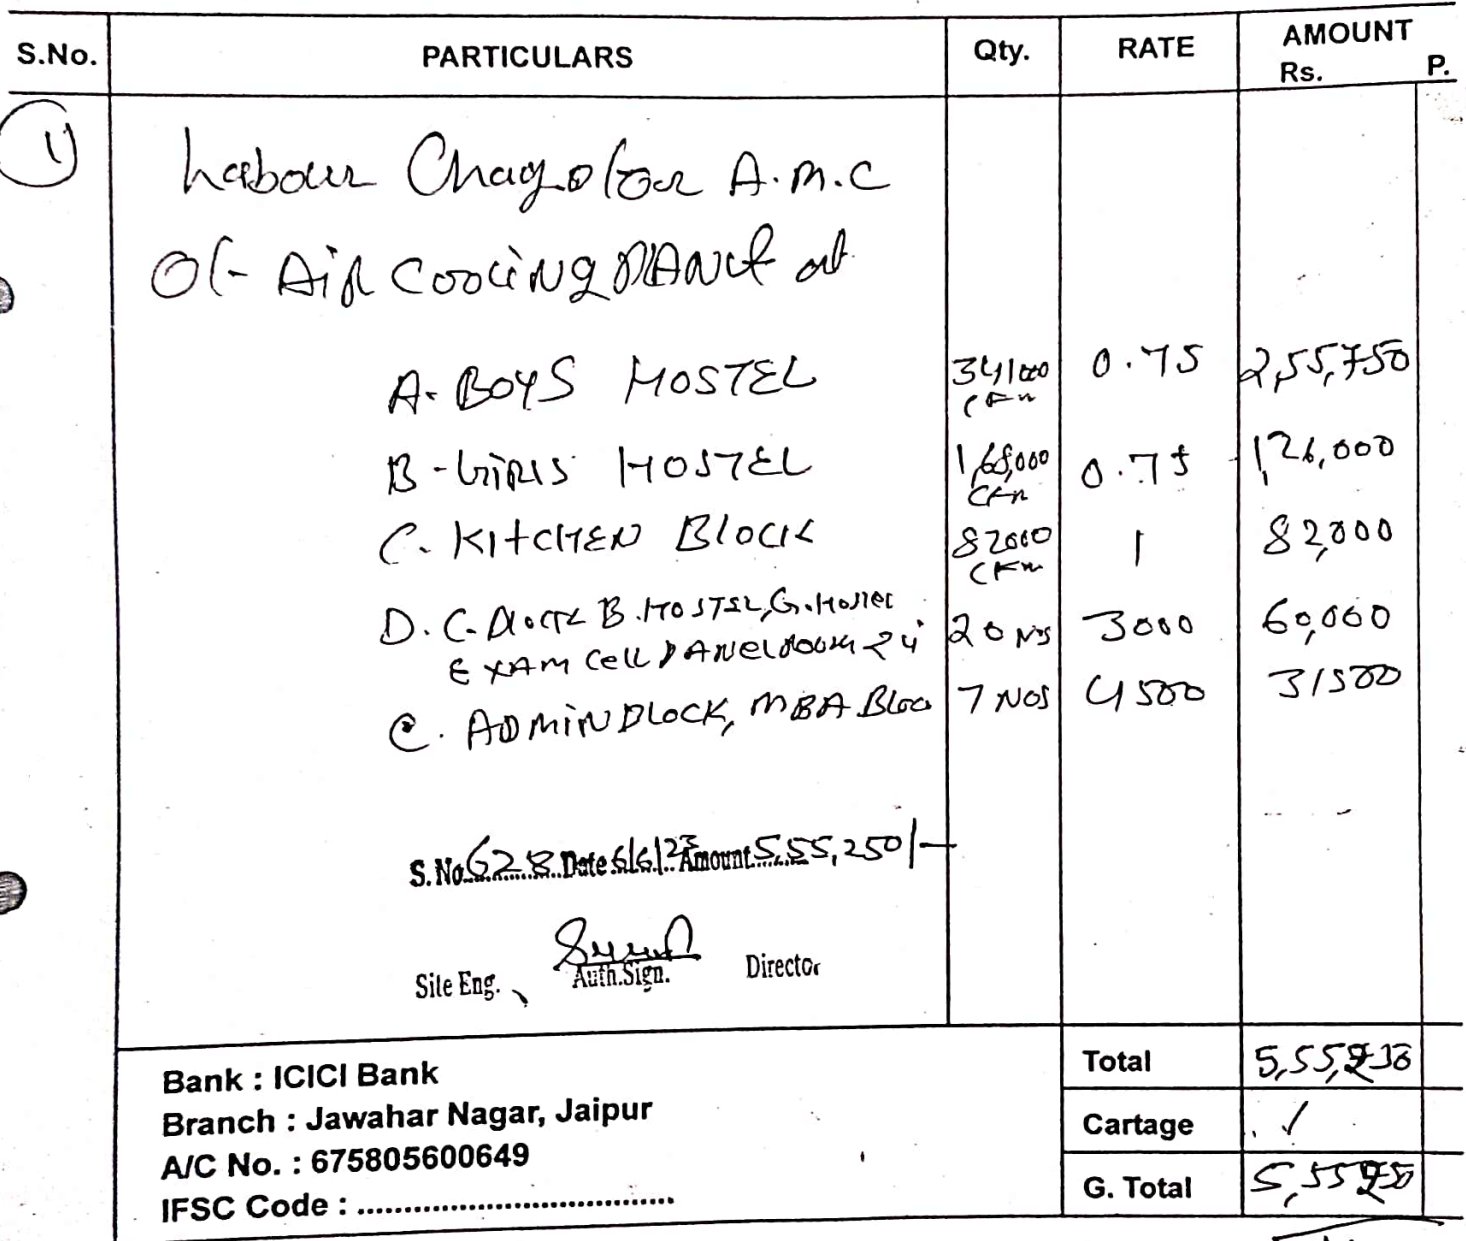 S.No. PARTICULARS Qty. RATE AMOUNT
Rs. P.
1) Labour Charge for A.M.C
Of- Air Cooling PLANT at
A. BOYS HOSTEL 341000 CFM 0.75 2,55,750
B - GIRLS HOSTEL 1,68,000 CFM 0.75 1,26,000
C. KITCHEN BLOCK 82000 CFM 1 82,000
D. C. Block B. HOSTEL, G. Hostel
EXAM Cell PANEL ROOM 24" 20 Nos 3000 60,000
e. ADMIN BLOCK, MBA Bloc 7 NOS 4500 31500
S. No. 628 Date 6/6/23 Amount 5,55,250/-
Site Eng. Auth.Sign. Director
Bank : ICICI Bank Total 5,55,250
Branch : Jawahar Nagar, Jaipur Cartage
A/C No. : 675805600649 G. Total 5,55250
IFSC Code : ..................................